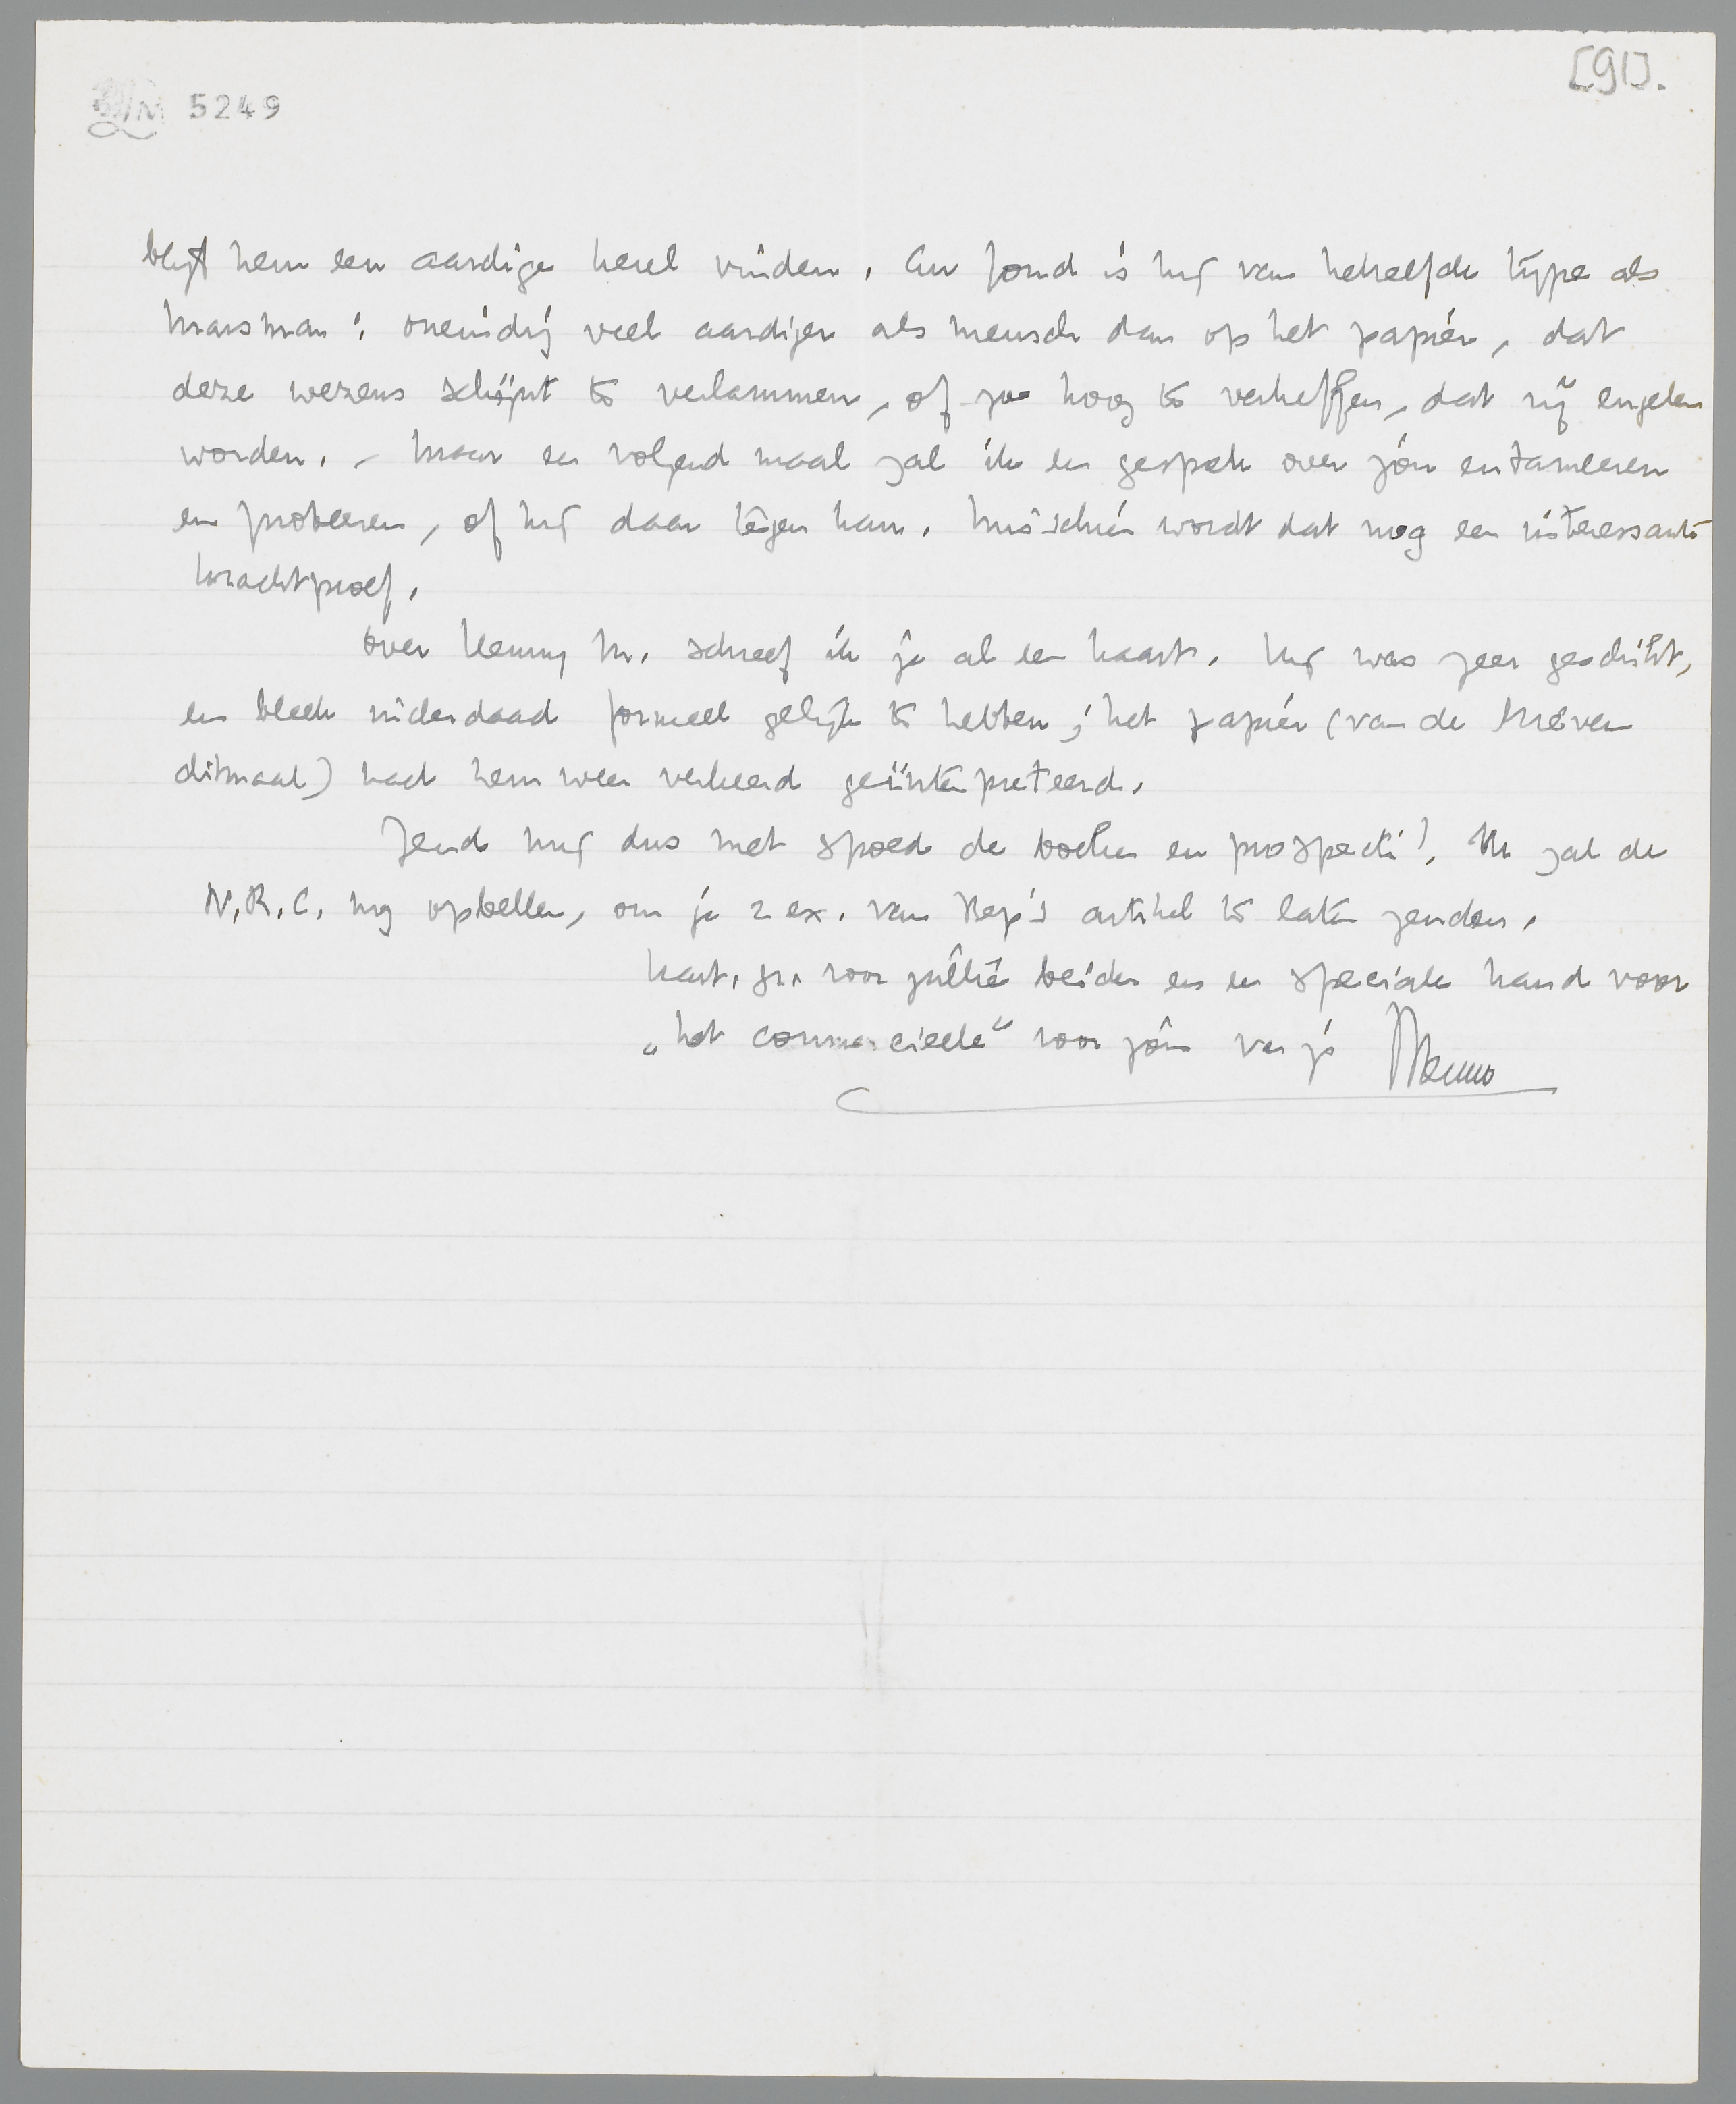 [91].
LM 5249
blijft hem een aardige kerel vinden. Au fond is hij van hetzelfde type als
Marsman: oneindig veel aardiger als mensch dan op het papier, dat
deze wezens schijnt te verlammen, of zoo hoog te verheffen, dat zij engelen
worden. - Maar een volgend maal zal ik een gesprek over jou entameeren
en probeeren, of hij daar tegen kan. Misschien wordt dat nog een interessante
krachtproef.
Over Henny M. schreef ik je al een kaart. Hij was zeer geschikt,
en bleek inderdaad formeel gelijk te hebben; het papier (van de brieven
ditmaal) had hem weer verkeerd geïnterpreteerd.
Zend mij dus met spoed de boeken en prospecti! Ik zal de
N.R.C. nog opbellen, om je 2 ex. van Rep's artikel te laten zenden.
Hart. gr. voor jullie beiden en een speciale hand voor
„het commercieele" voor jou van je Menno